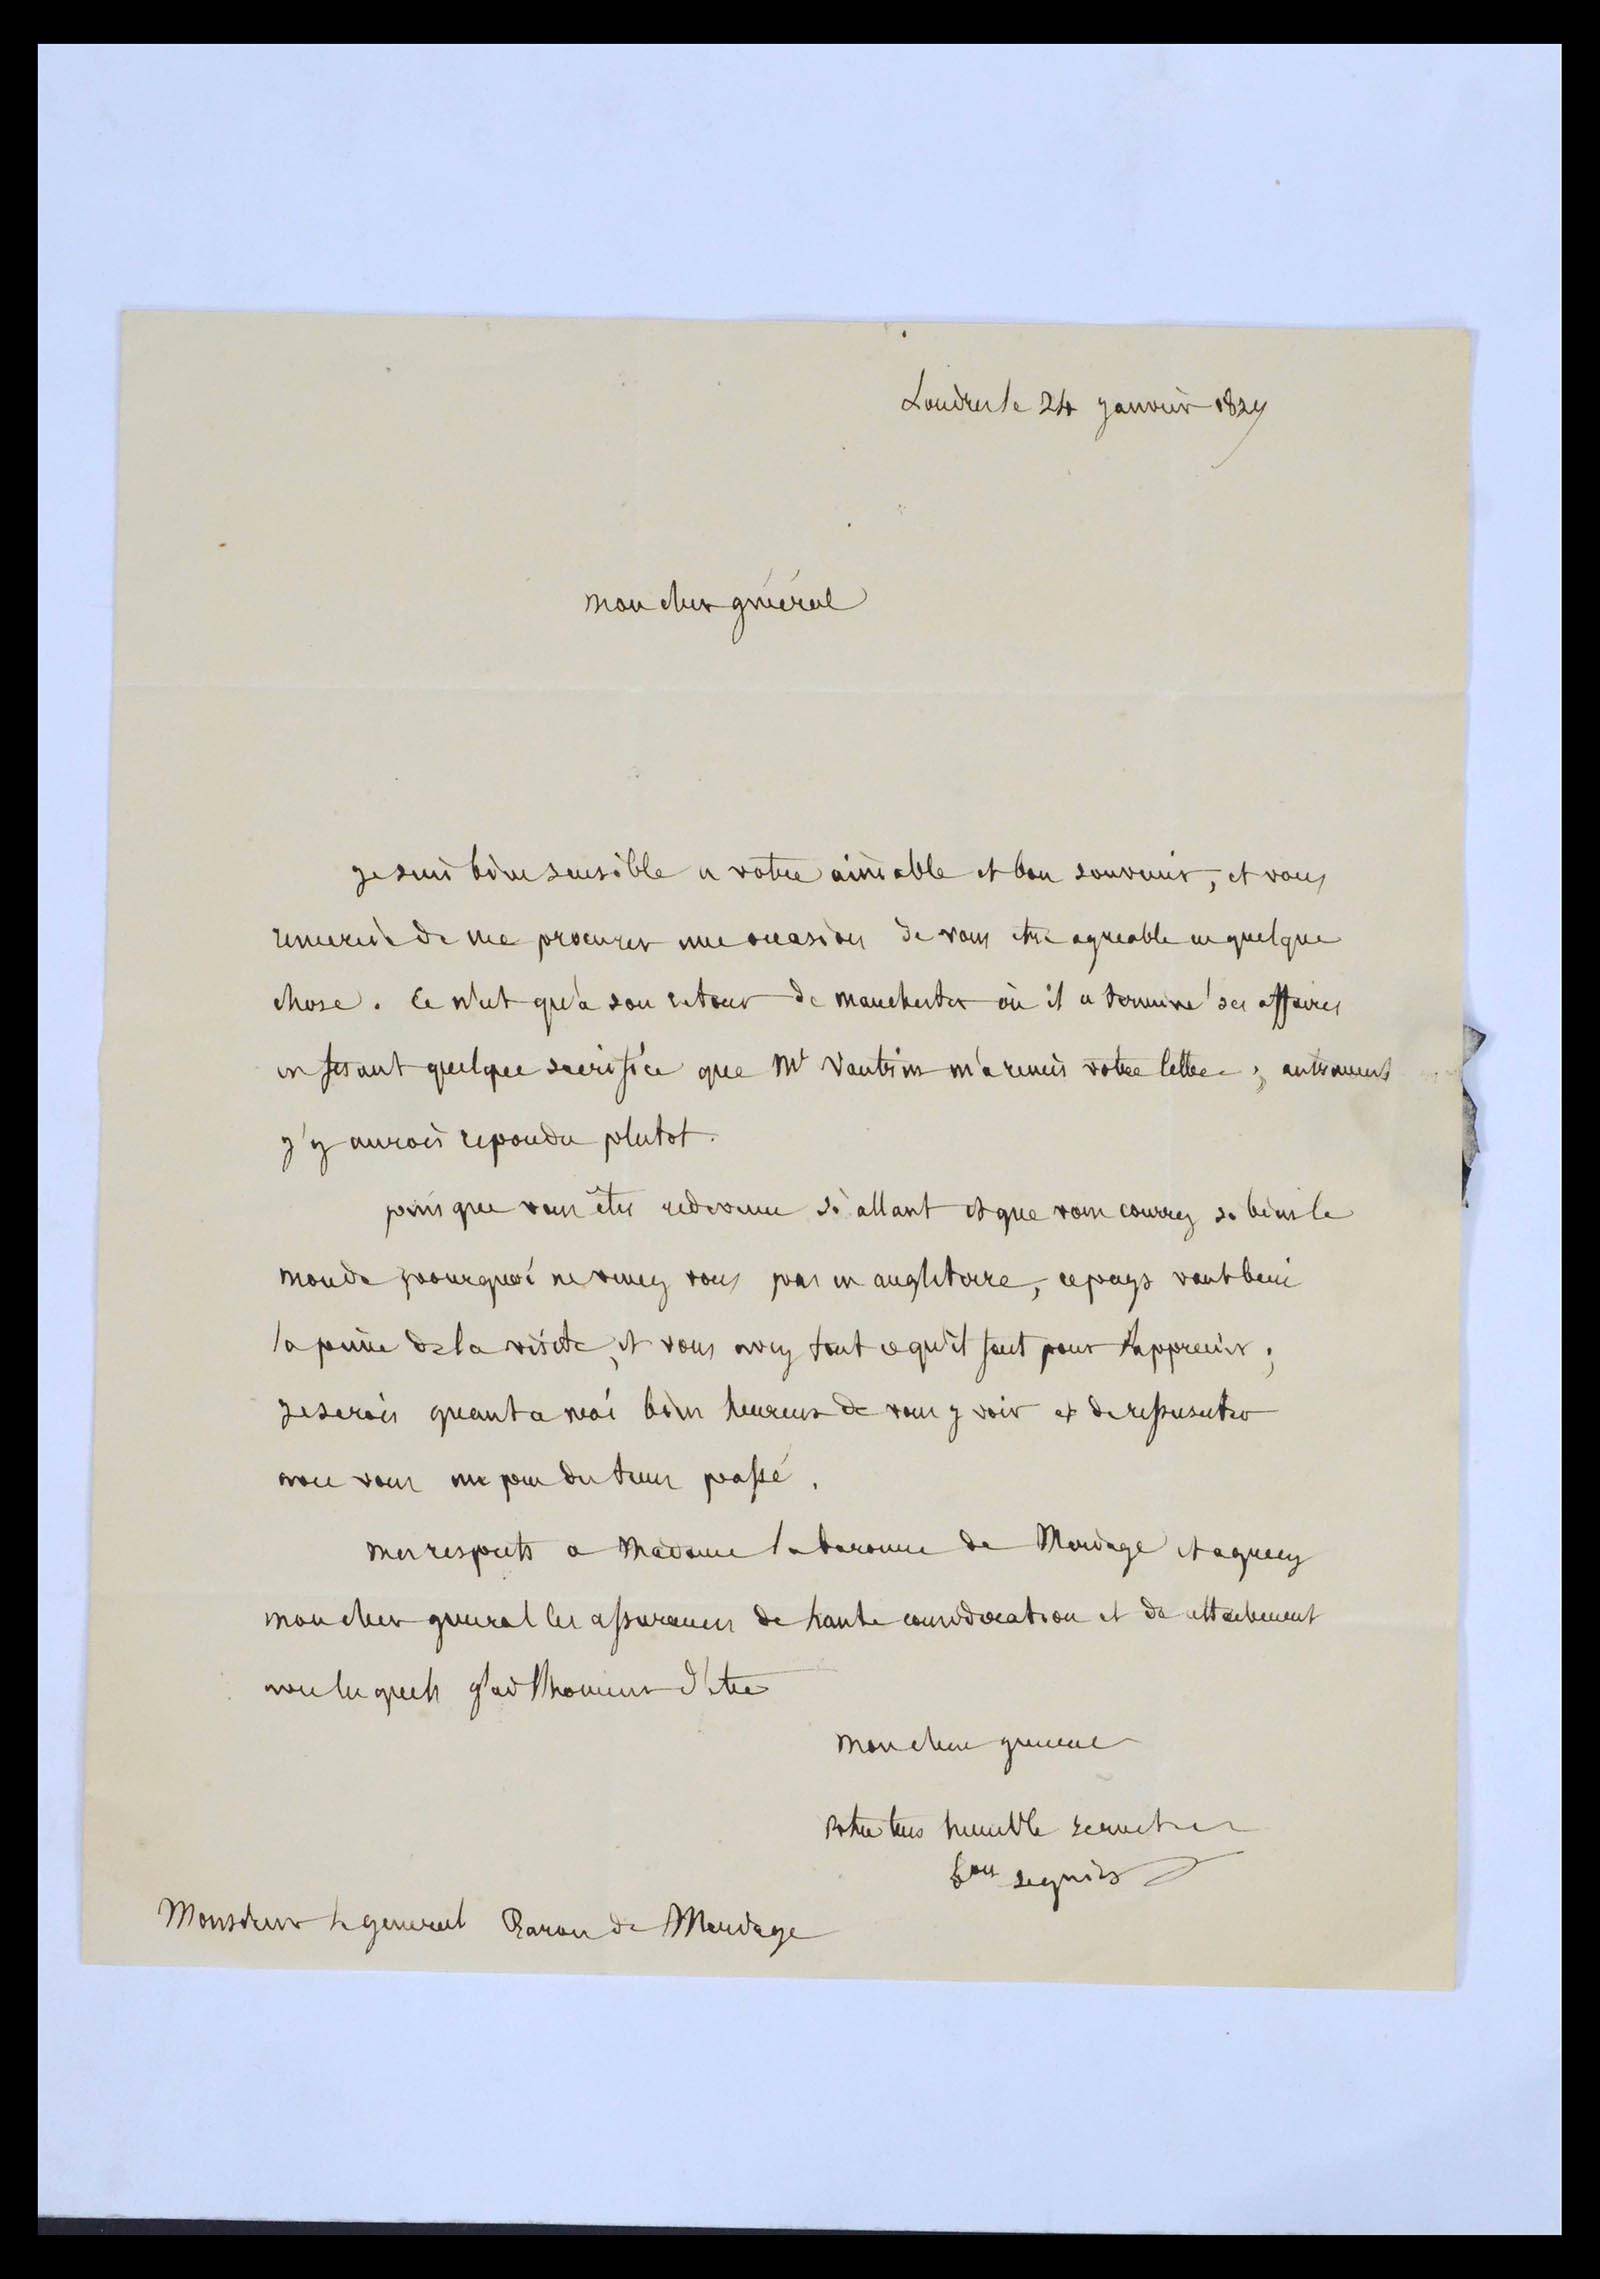 Londres le 24 janvier 1829
mon cher général
je suis bien sensible a votre aimable et bon souvenir, et vous
remercie de me procurer une occasion de vous etre agreable en quelque
chose. Ce n'est qu'a son retour de manchester où il a terminé ses affaires
en fesant quelque sacrifice que Mr Vautrin m'a remis votre lettre; autrement
j'y aurois repondu plutot.
puis que vous êtes redevenu si allant et que vous courrez si bien le
monde pourquoi ne venez vous pas en angleterre, ce pays vaut bien
la peine de la visite, et vous avez tout ce qu'il faut pour l'apprecier;
je serois quant a moi bien heureux de vous y voir et de ressusciter
avec vous un peu du tems passé.
mes respects a Madame la baronne de Mendage et agreez
mon cher general les assurances de haute consideration et de attachement
avec lesquels j'ai l'honneur d'etre
mon cher general
votre tres humble serviteur
bon seguier
Monsieur le general Baron de Mendage